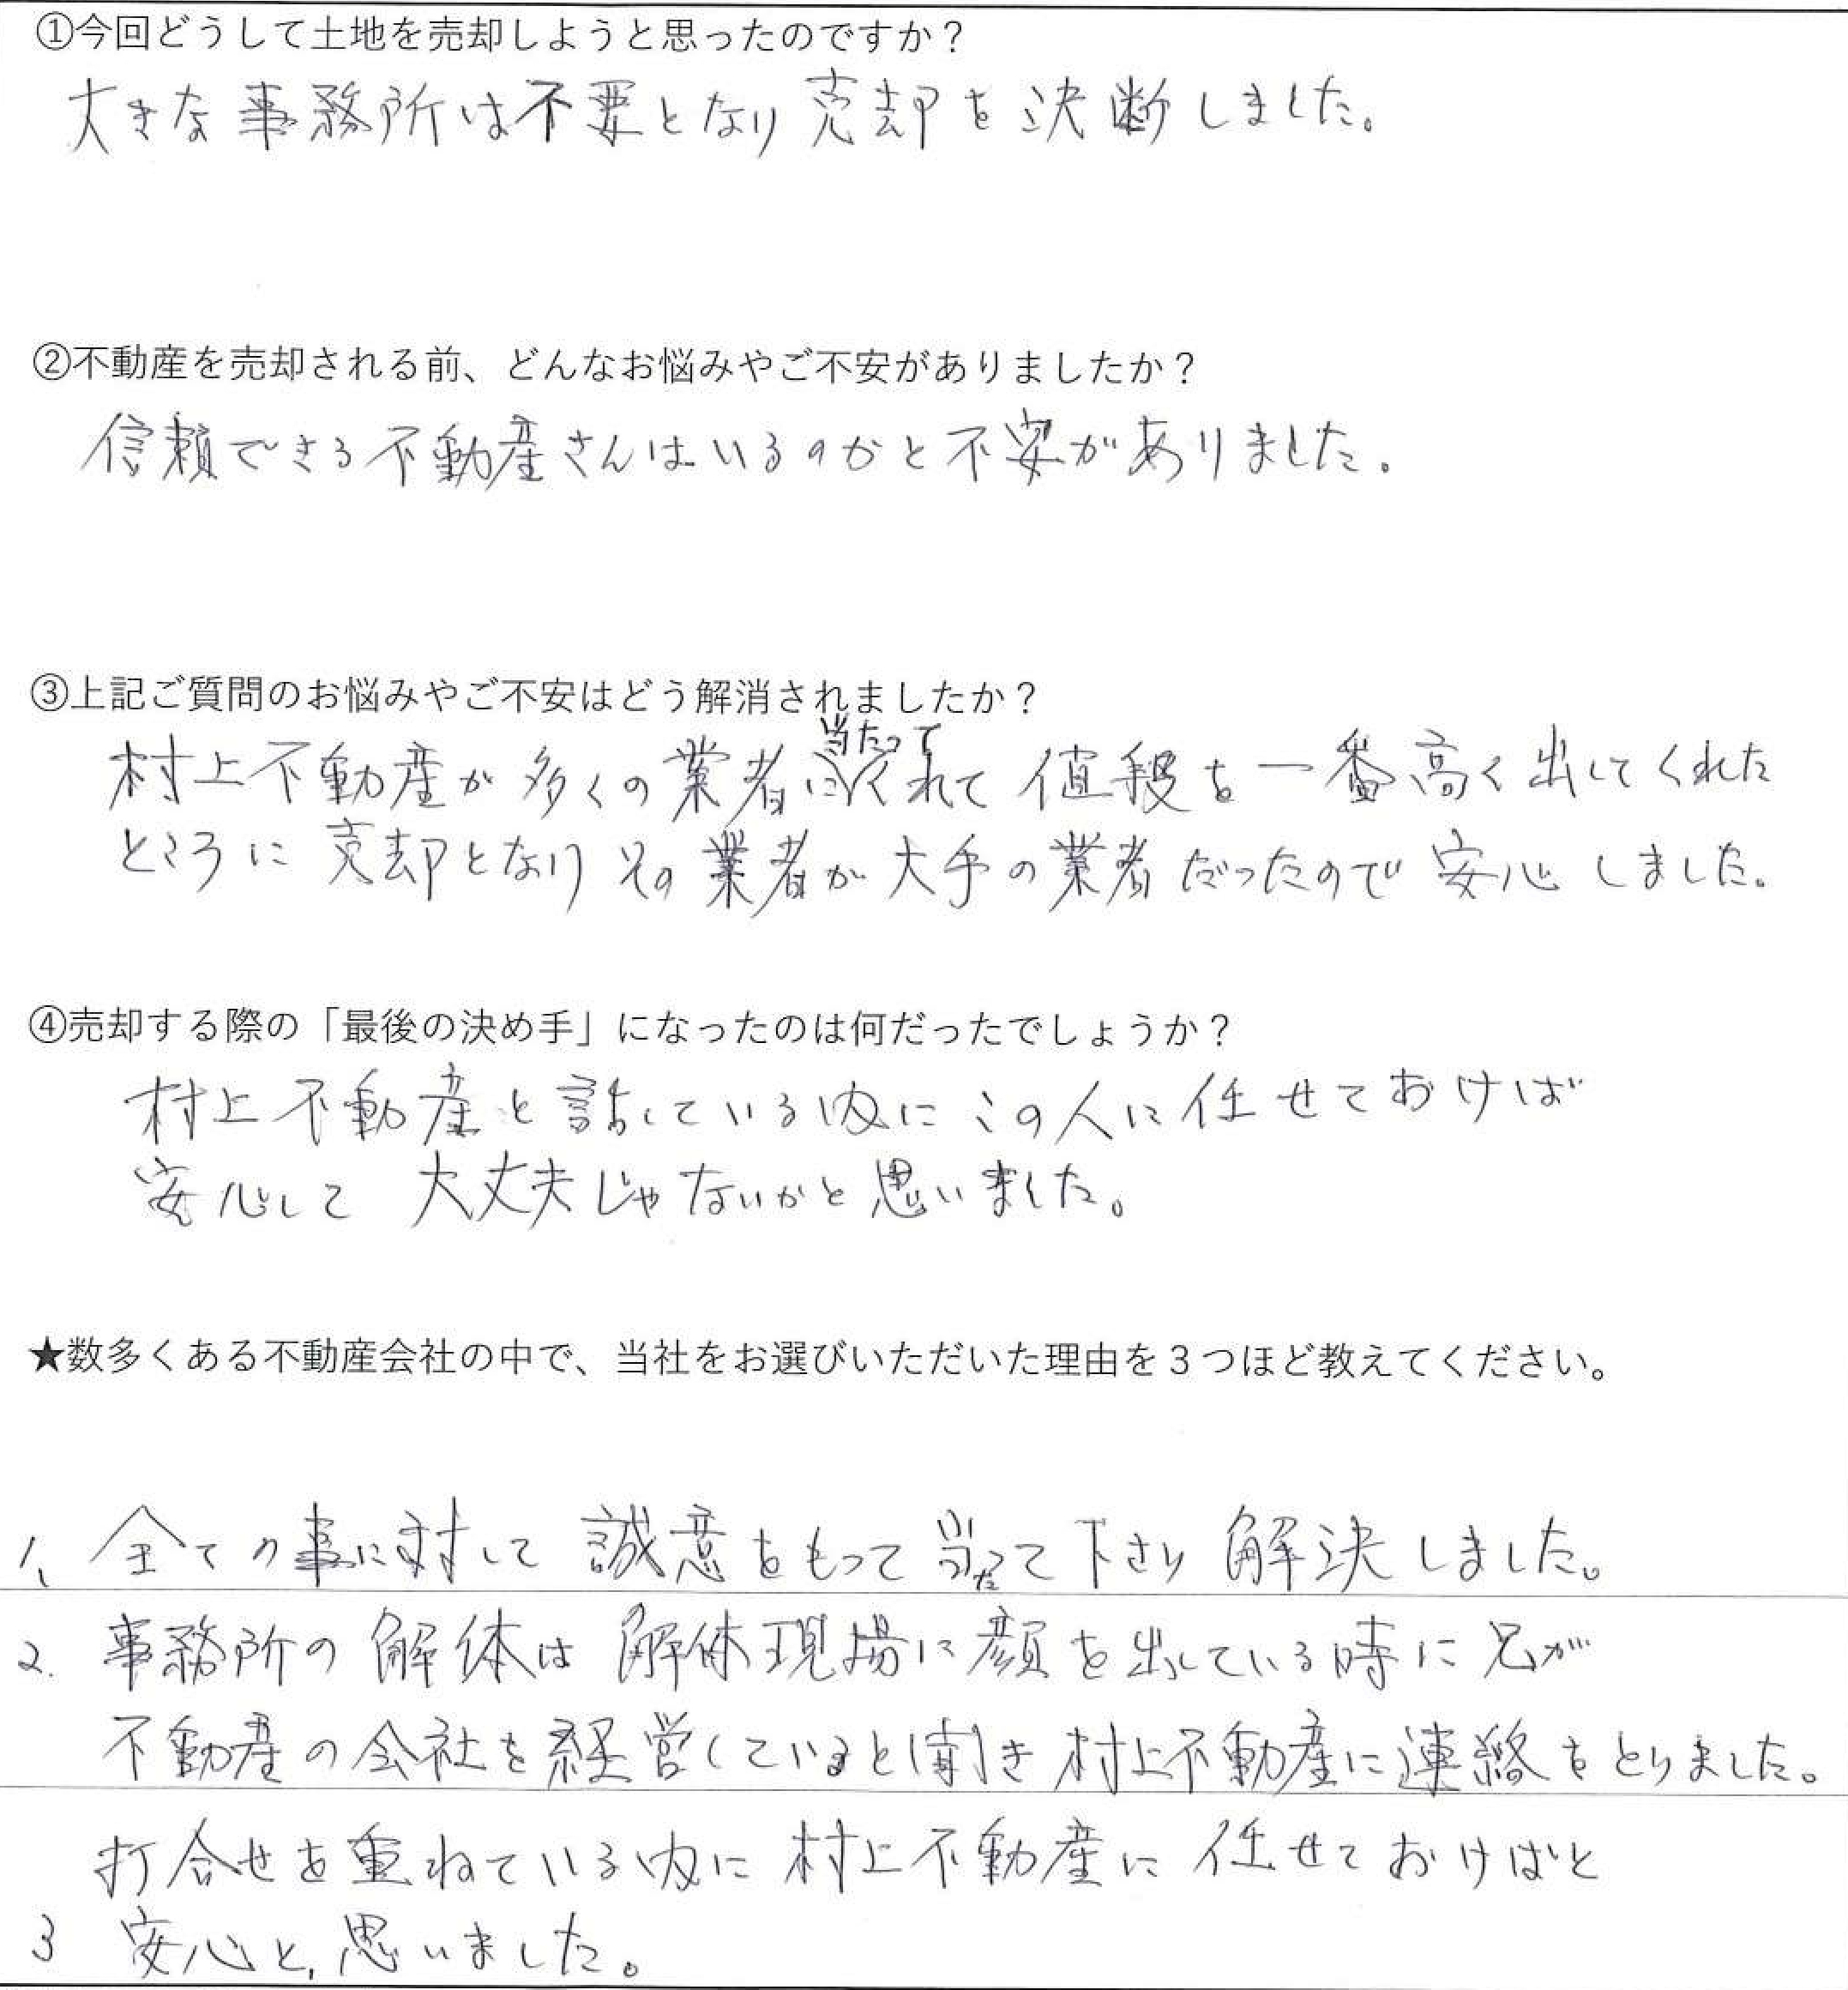 ①今回どうして土地を売却しようと思ったのですか？
大きな事務所は不要となり売却を決断しました。
②不動産を売却される前、どんなお悩みやご不安がありましたか？
信頼できる不動産さんはいるのかと不安がありました。
③上記ご質問のお悩みやご不安はどう解消されましたか？
村上不動産が多くの業者に当たってくれて値段を一番高く出してくれた
ところに売却となりその業者が大手の業者だったので安心しました。
④売却する際の「最後の決め手」になったのは何だったでしょうか？
村上不動産と話している内にこの人に任せておけば
安心して大丈夫じゃないかと思いました。
★数多くある不動産会社の中で、当社をお選びいただいた理由を３つほど教えてください。
1、全ての事に対して誠意をもって当たって下さり解決しました。
2. 事務所の解体は解体現場に顔を出している時に兄が
不動産の会社を経営していると聞き村上不動産に連絡をとりました。
打合せを重ねている内に村上不動産に任せておけばと
3 安心と思いました。